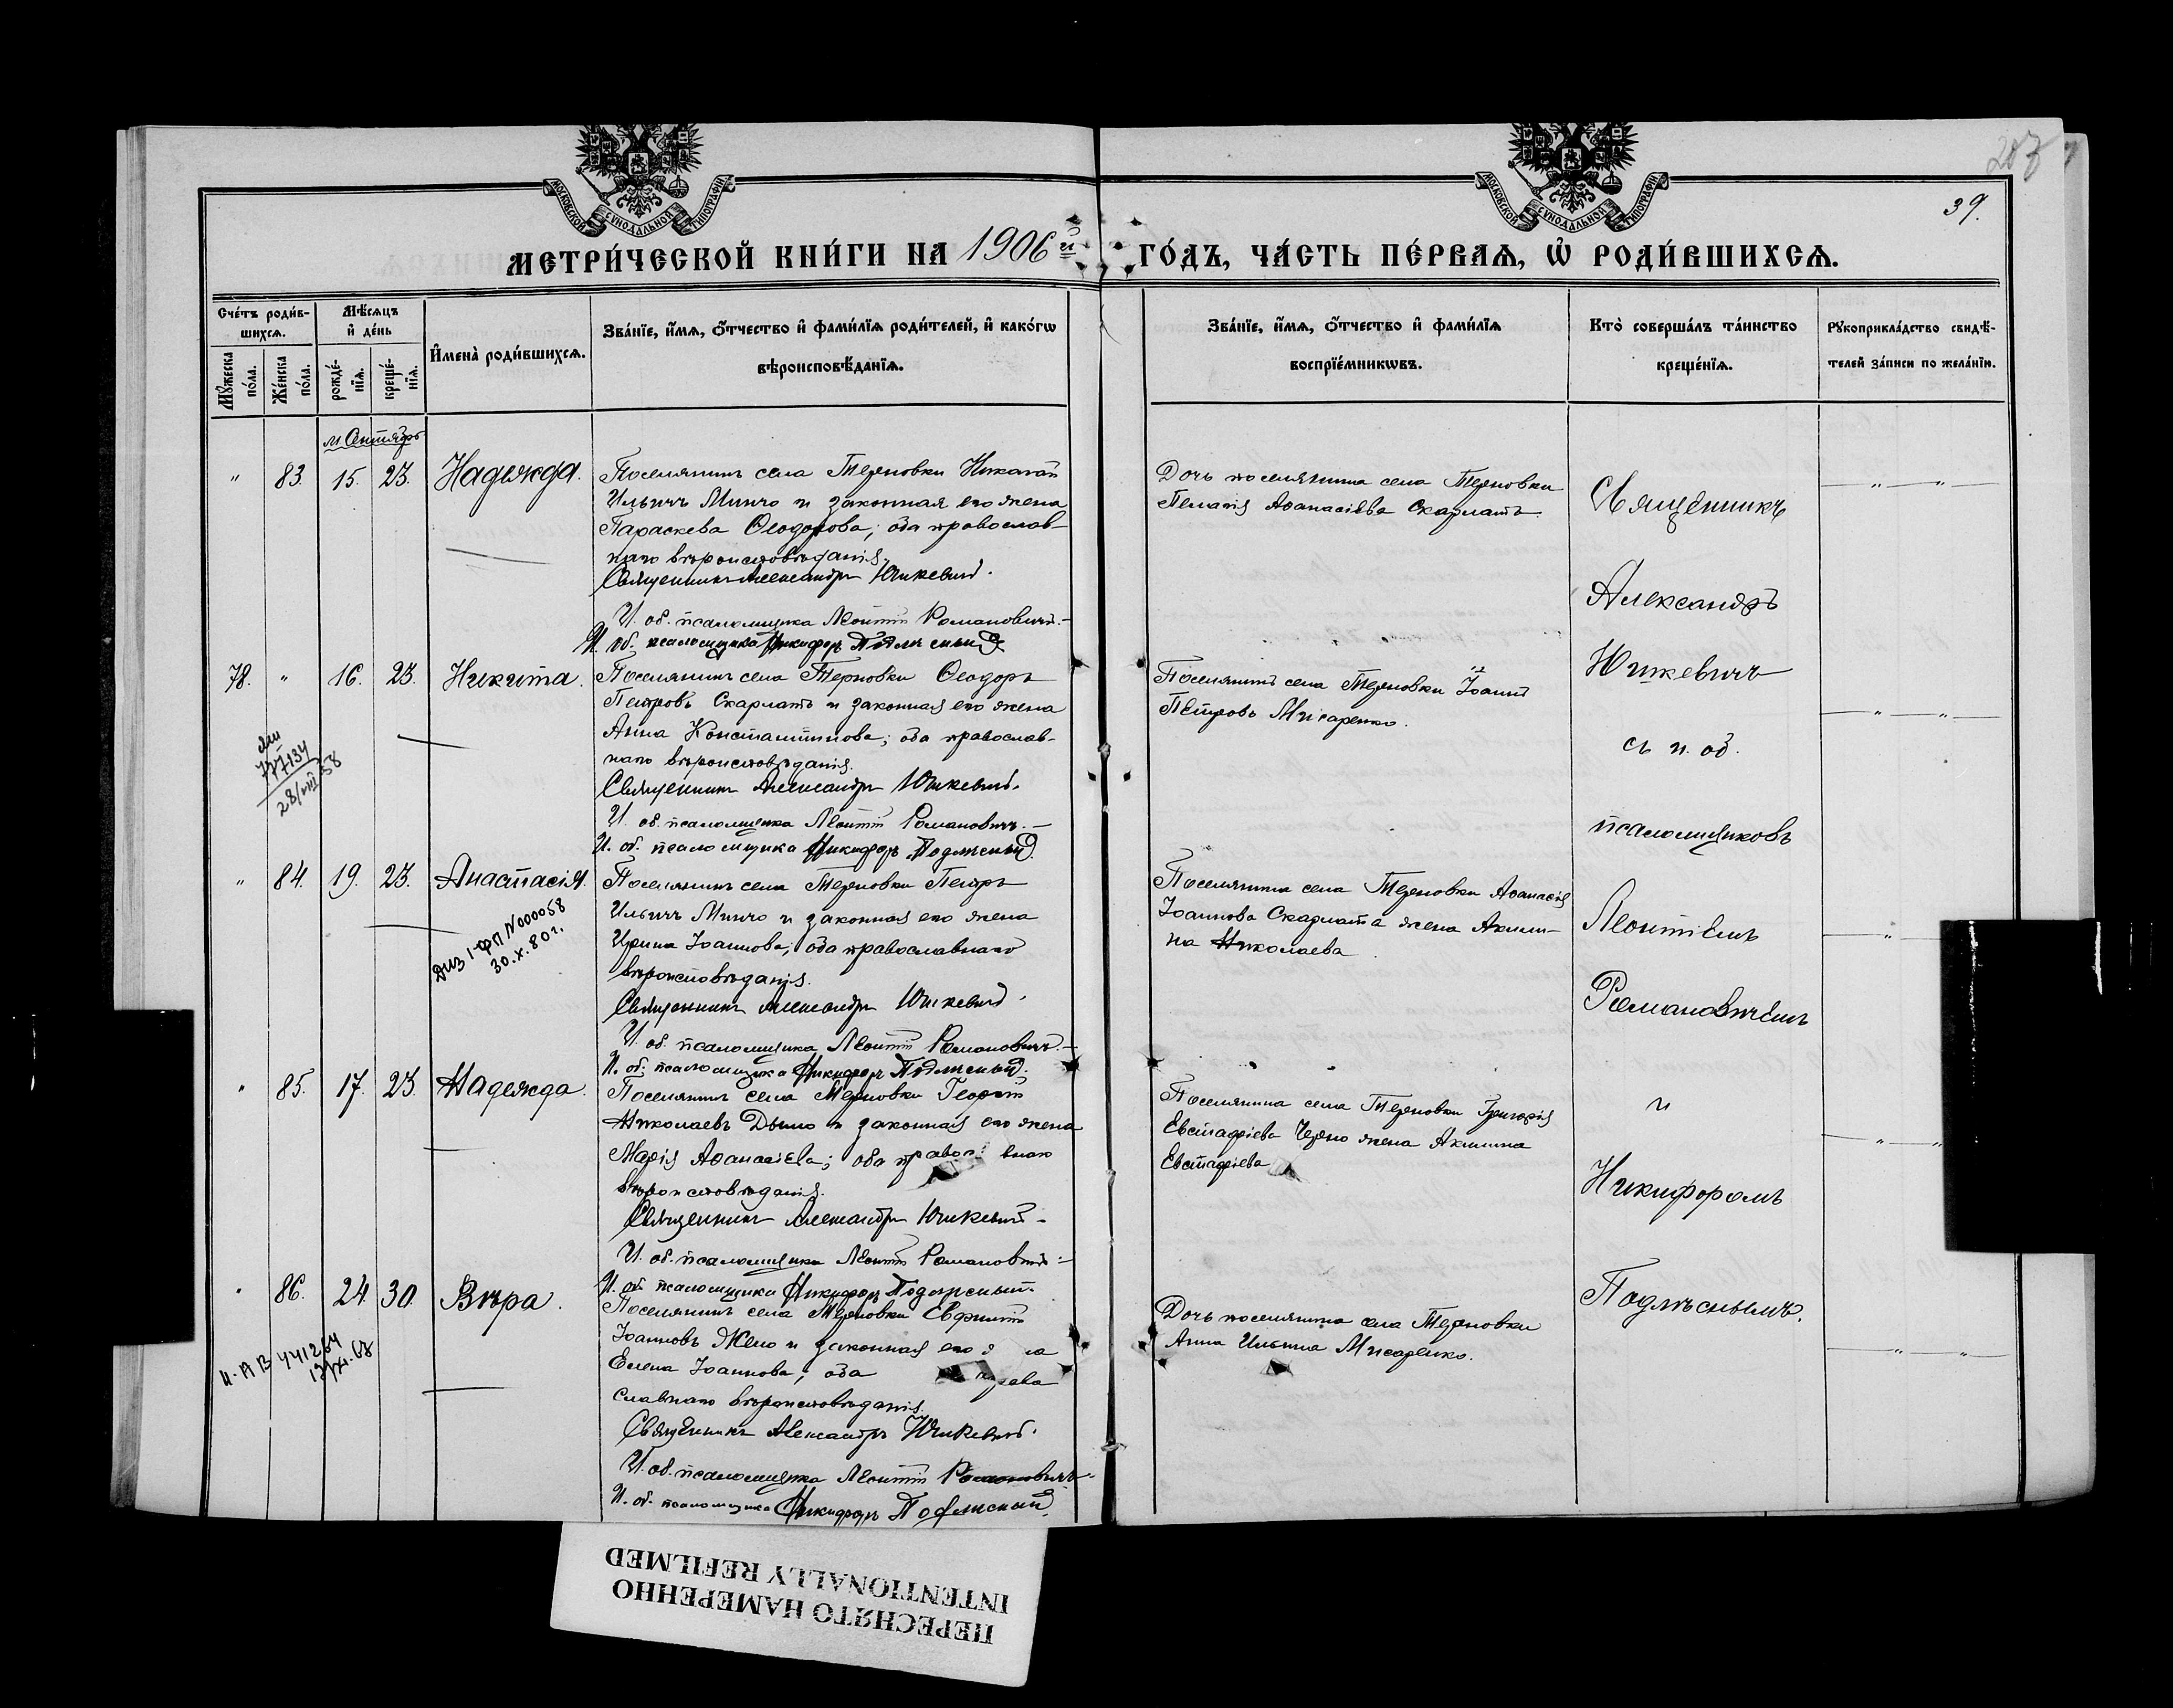 МОСКОВСКОЙ СУНОДАЛЬНОЙ ТИПОГРАФІИ
МОСКОВСКОЙ СУНОДАЛЬНОЙ ТИПОГРАФІИ
203
39.
МЕТРИ́ЧЕСКОЙ КНИ́ГИ НА 1906й ГО́ДЪ, ЧА́СТЬ ПЕ́РВАѦ, Ѡ҆ РОДИ́ВШИХСѦ.
Сче́тъ роди́в-
шихсѧ.
Мѣ́сѧцъ
и҆ де́нь
Мꙋ́жеска
по́ла.
Же́нска
по́ла.
рожде́-
нїѧ.
креще́-
нїѧ.
И҆мена̀ роди́вшихсѧ.
Зва́нїе, и҆́мѧ, ѻ҆́тчество и҆ фами́лїѧ роди́телей, и҆ како́гѡ
вѣроисповѣ́данїѧ.
Зва́нїе, и҆́мѧ, ѻ҆́тчество и҆ фами́лїѧ
воспрїе́мникѡвъ.
Кто̀ соверша́лъ та́инство
креще́нїѧ.
Рꙋкоприкла́дство свидѣ́-
телей за́писи по жела́нїю.
м. Сентябрь
" 83. 15. 23. Надежда.
Поселянинъ села Терновки Николай
Ильичъ Минчо и законная его жена
Параскева Ѳеодорова; оба православ-
наго вѣроисповѣданія.
Священникъ Александръ Юшкевичъ.
И. об. псаломщика Леонтій Романовичъ.-
И. об. псаломщика Никифоръ Подлѣсный
Дочь поселянина села Терновки
Пелагія Аѳанасіева Скарлатъ
78. " 16. 23. Никита.
Поселянинъ села Терновки Ѳеодоръ
Петровъ Скарлатъ и законная его жена
Анна Константинова; оба православ-
наго вѣроисповѣданія.
Священникъ Александръ Юшкевичъ.
И. об. псаломщика Леонтій Романовичъ.-
И. об. псаломщика Никифоръ Подлѣсный.
Поселянинъ села Терновки Іоаннъ
Петровъ Писаренко.
777134
28/VIII 58
" 84. 19. 23. Анастасія.
Поселянинъ села Терновки Петръ
Ильичъ Минчо и законная его жена
Ирина Іоаннова; оба православнаго
вѣроисповѣданія.
Священникъ Александръ Юшкевичъ.
И. об. псаломщика Леонтій Романовичъ.-
И. об. псаломщика Никифоръ Подлѣсный.
Поселянина села Терновки Аѳанасія
Іоаннова Скарлата жена Акили-
на Николаева
I-ФП N000058
30.X.80г.
" 85. 17. 23. Надежда.
Поселянинъ села Терновки Георгій
Николаевъ Дымо и законная его жена
Марія Аѳанасіева; оба
вѣроисповѣданія.
Священникъ Александръ Юшкевичъ-
И. об. псаломщика Леонтій Романовичъ.-
И. об. псаломщика Никифоръ Подлѣсный.
Поселянина села Терновки Григорія
Евстафіева Черно жена Акилина
Евстафіева
" 86. 24. 30. Вѣра.
Поселянинъ села Терновки Евфимій
Іоанновъ Жело и законная его
Елена Іоаннова; оба
славнаго вѣроисповѣданія.
Священникъ Александръ Юшкевичъ.
И. об. псаломщика Леонтій Романовичъ.
И. об. псаломщика Никифоръ Подлѣсный.
Дочь поселянина села Терновки
Анна Ильина Писаренко.
Священникъ
Александръ
Юшкевичъ
съ и. об.
псаломщиковъ
Леонтіемъ
Романовичемъ
и
Никифоромъ
Подлѣснымъ.
ПЕРЕСНЯТО НАМЕРЕННО
INTENTIONALLY REFILMED